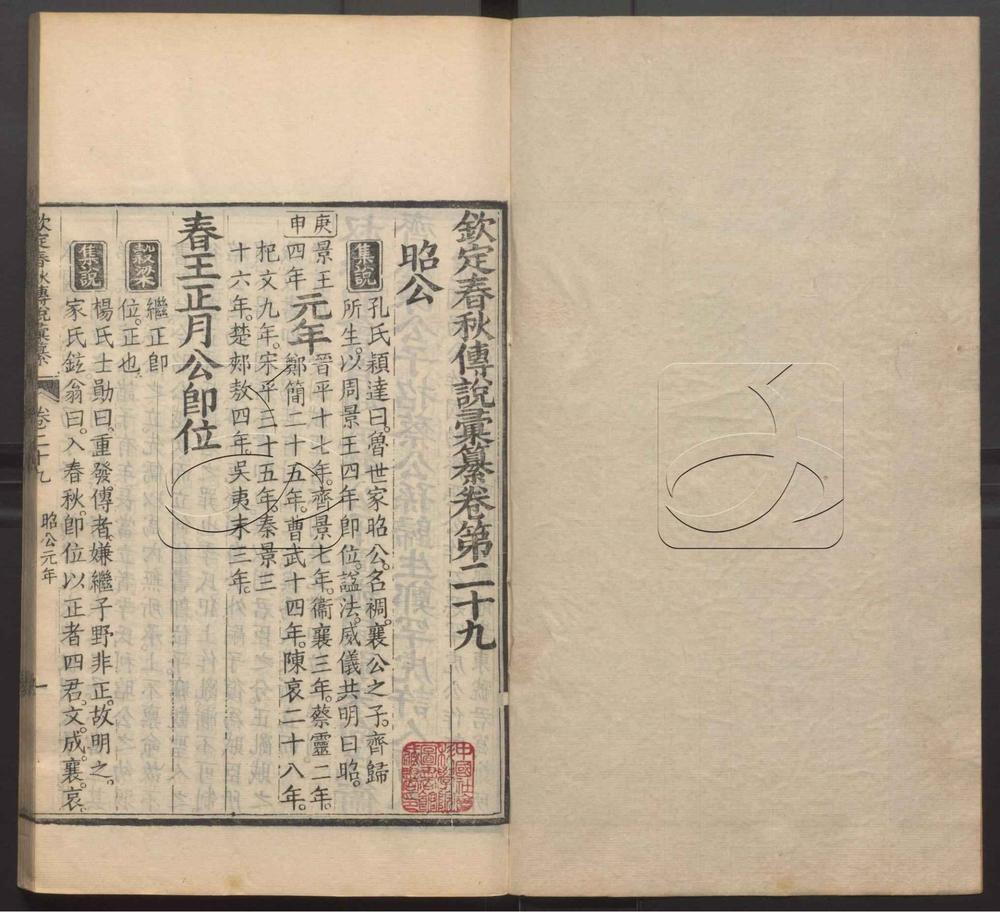 欽定春秋傳說彙纂卷第二十九
昭公
集說
孔氏穎達曰。魯世家昭公。名裯。襄公之子。齊歸
所生。以周景王四年卽位。諡法。威儀共明曰昭。
庚申
景王四年
元年
晉平十七年。齊景七年。衞襄三年。蔡靈二年。
鄭簡二十五年。曹武十四年。陳哀二十八年。
杞文九年。宋平三十五年。秦景三
十六年。楚郟敖四年。吳夷末三年。
春王正月公卽位
穀梁
繼正卽
位。正也。
集說
楊氏士勛曰。重發傳者。嫌繼子野非正。故明之。
家氏鉉翁曰。入春秋。卽位以正者四君。文。成。襄。哀。
欽定春秋傳說彙纂
卷二十九
昭公元年
一